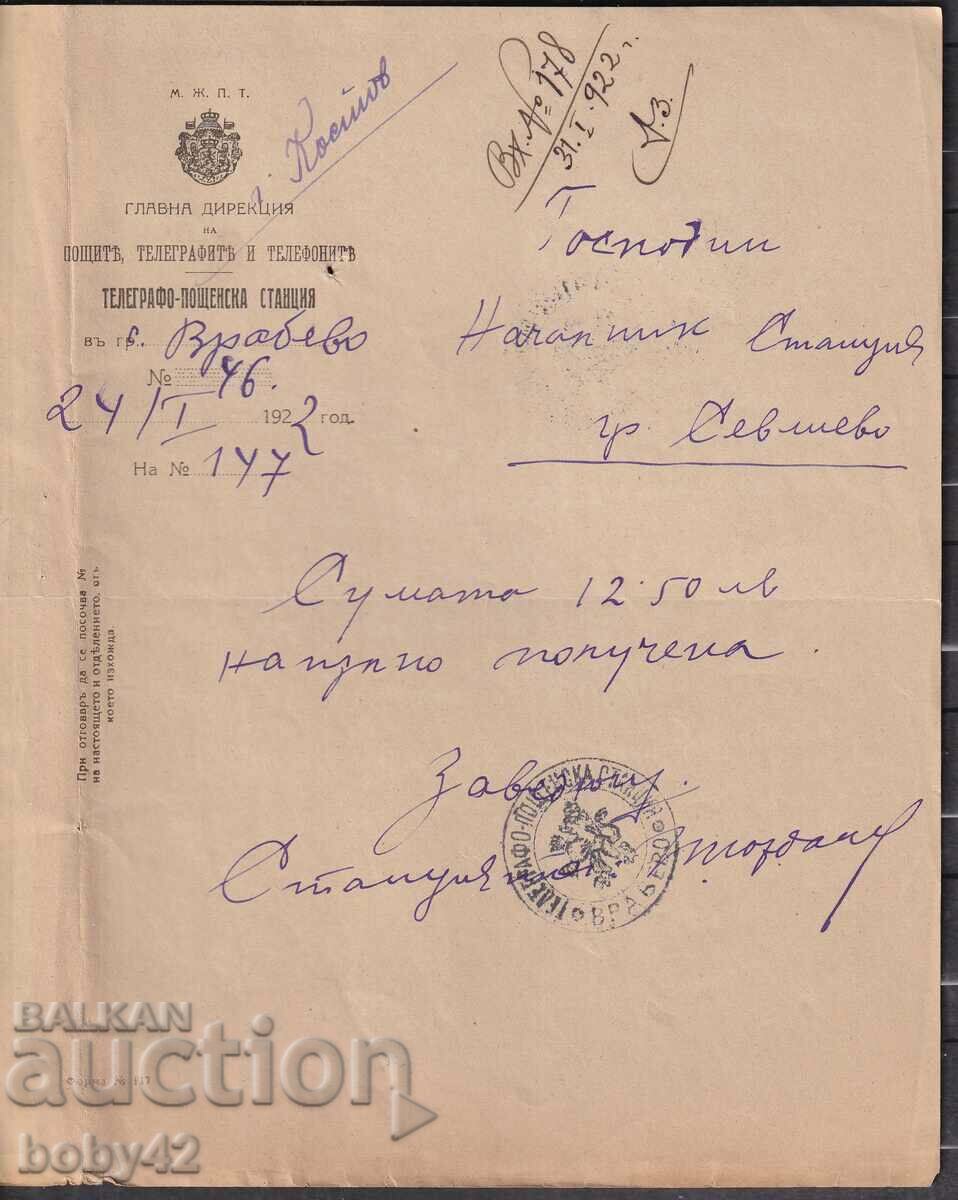 М. Ж. П. Т.
ГЛАВНА ДИРЕКЦИЯ
НА
ПОЩИТѢ, ТЕЛЕГРАФИТѢ И ТЕЛЕФОНИТѢ
ТЕЛЕГРАФО-ПОЩЕНСКА СТАНЦИЯ
въ гр. с. Врабево
№ 46.
24/I 1922 год.
На № 147
г. Костов
Вх. № 178
31.I.922 г.
Господин
Началник Станция
гр. Севлиево
Сумата 12.50 лв
напълно получена.
При отговаръ да се посочва №
на настоящето и отдѣлението, отъ
което изхожда.
Завед
ТЕЛЕГРАФО-ПОЩЕНСКА СТАНЦИЯ
ВРАБЕВО
Форма №
BALKAN
auction
boby42